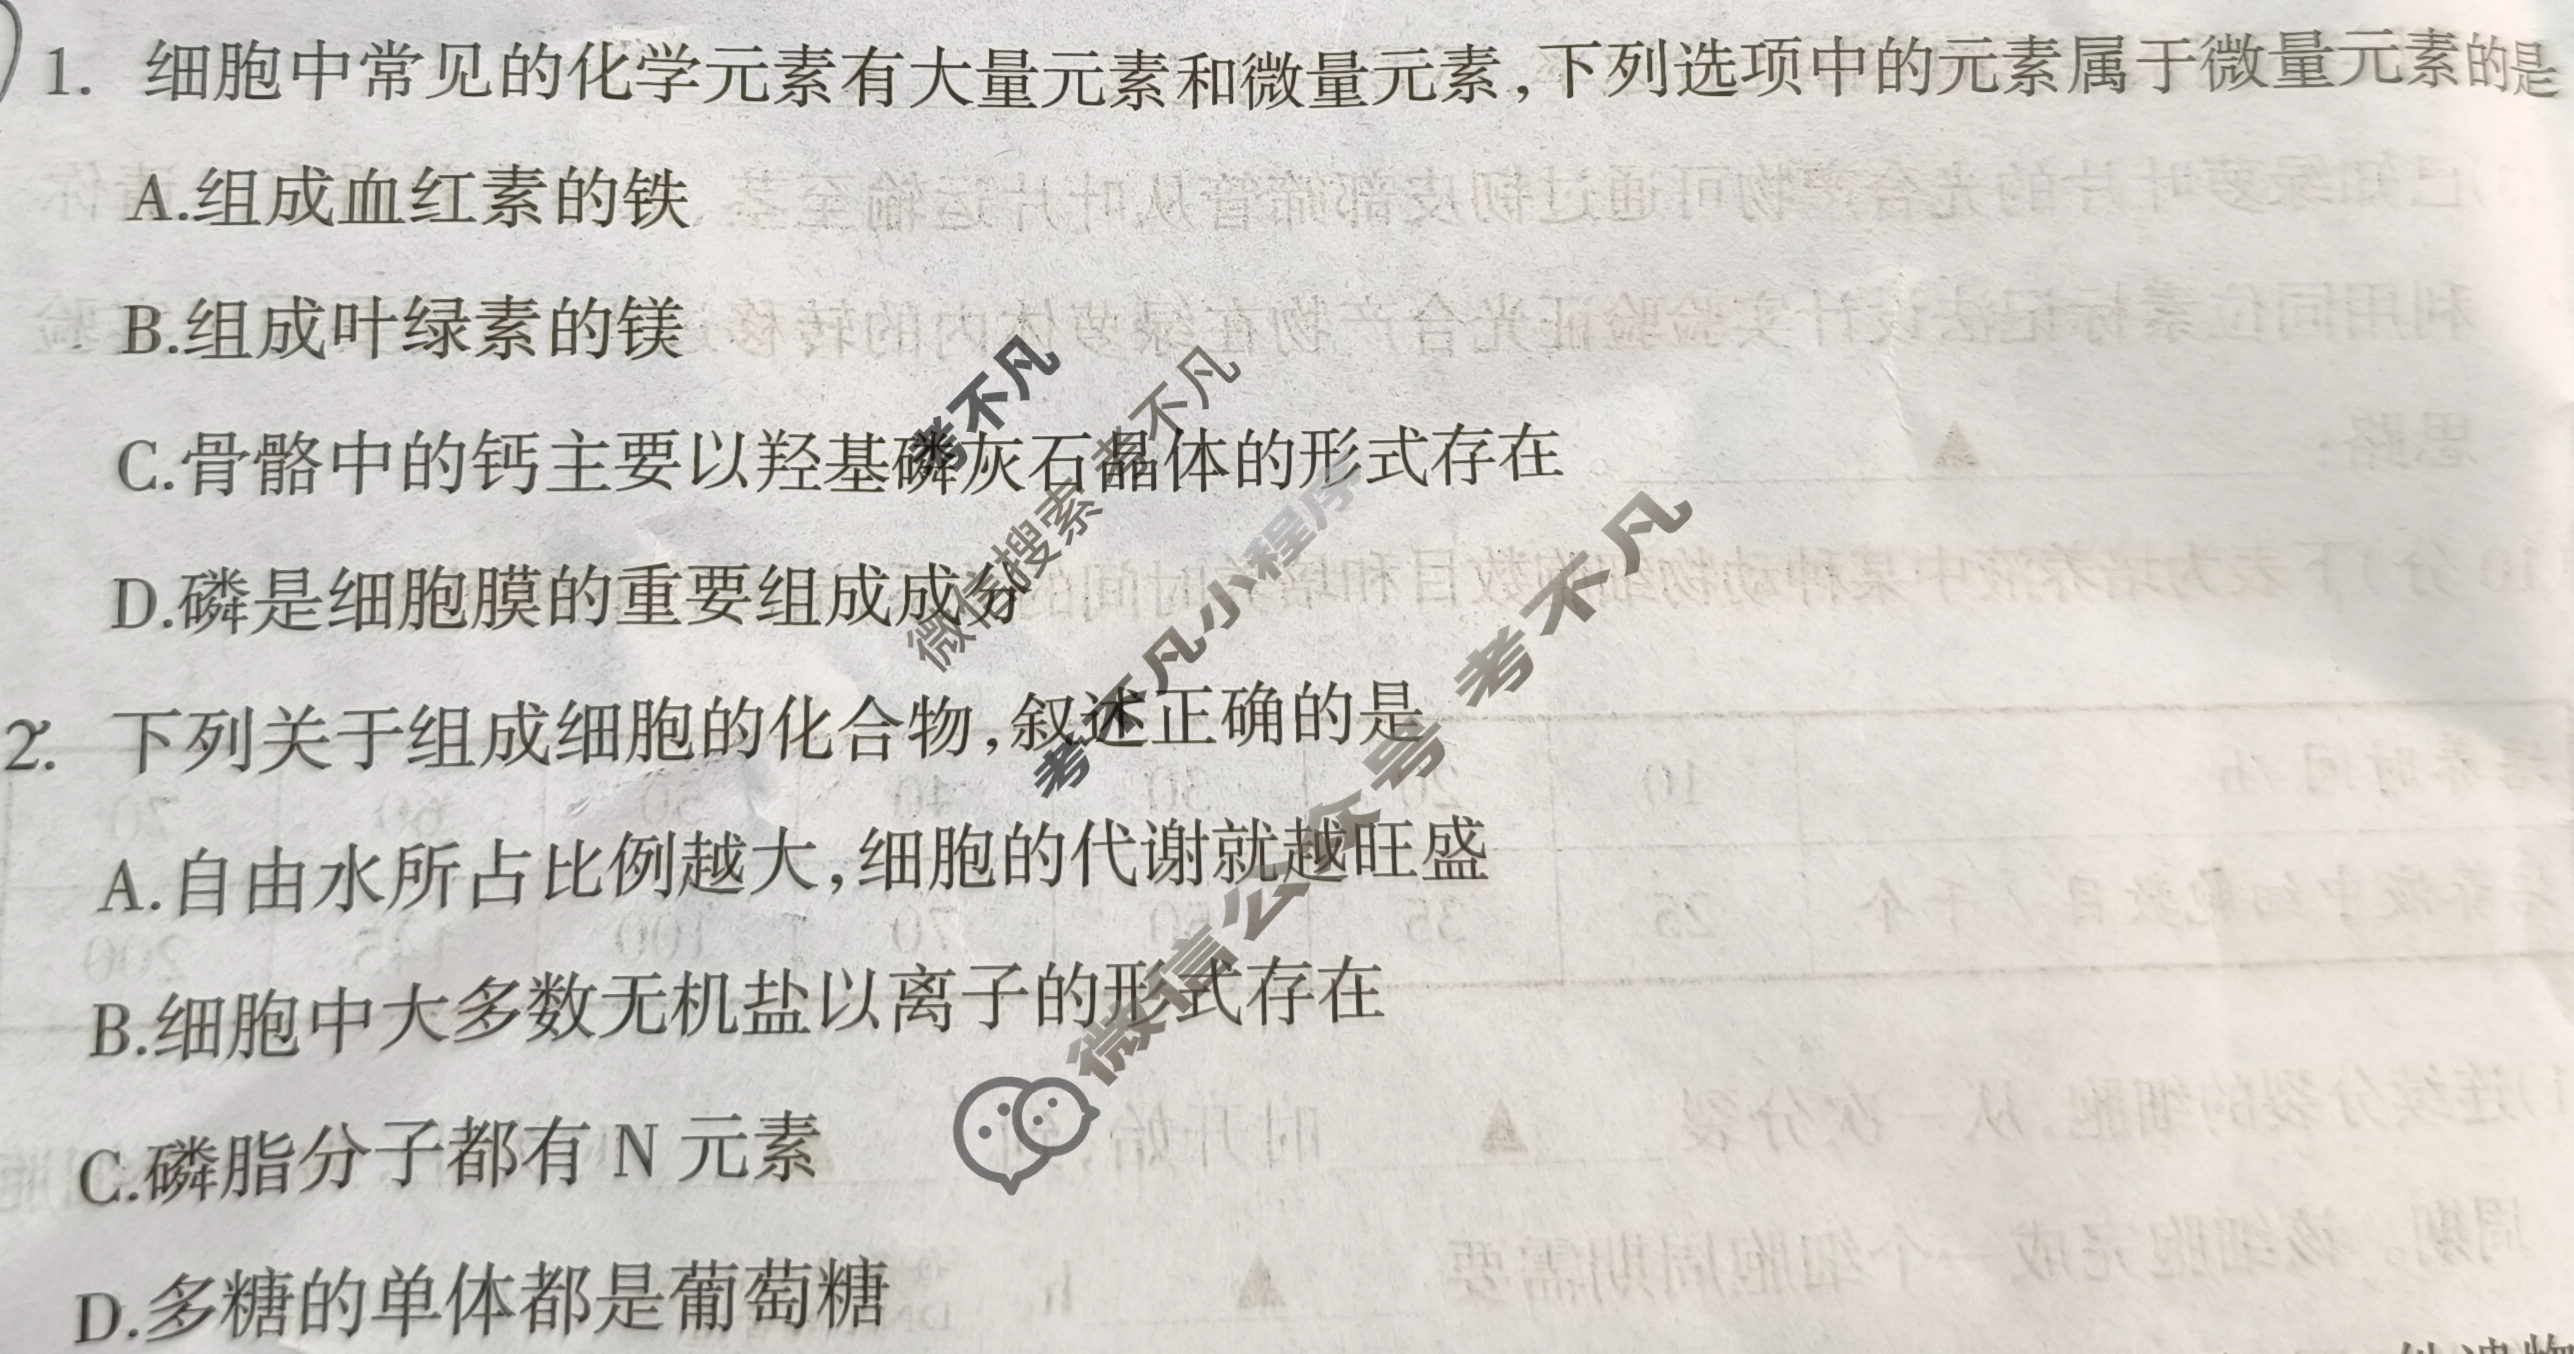 1. 细胞中常见的化学元素有大量元素和微量元素,下列选项中的元素属于微量元素的是
A.组成血红素的铁
B.组成叶绿素的镁
C.骨骼中的钙主要以羟基磷灰石晶体的形式存在
D.磷是细胞膜的重要组成成分
2. 下列关于组成细胞的化合物,叙述正确的是
A.自由水所占比例越大,细胞的代谢就越旺盛
B.细胞中大多数无机盐以离子的形式存在
C.磷脂分子都有 N 元素
D.多糖的单体都是葡萄糖
考不凡
微信搜索 考不凡
考不凡小程序
微信公众号 考不凡